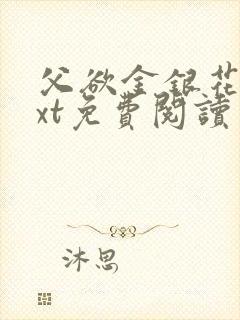 父欲金銀花
xt免費閱讀
沐思